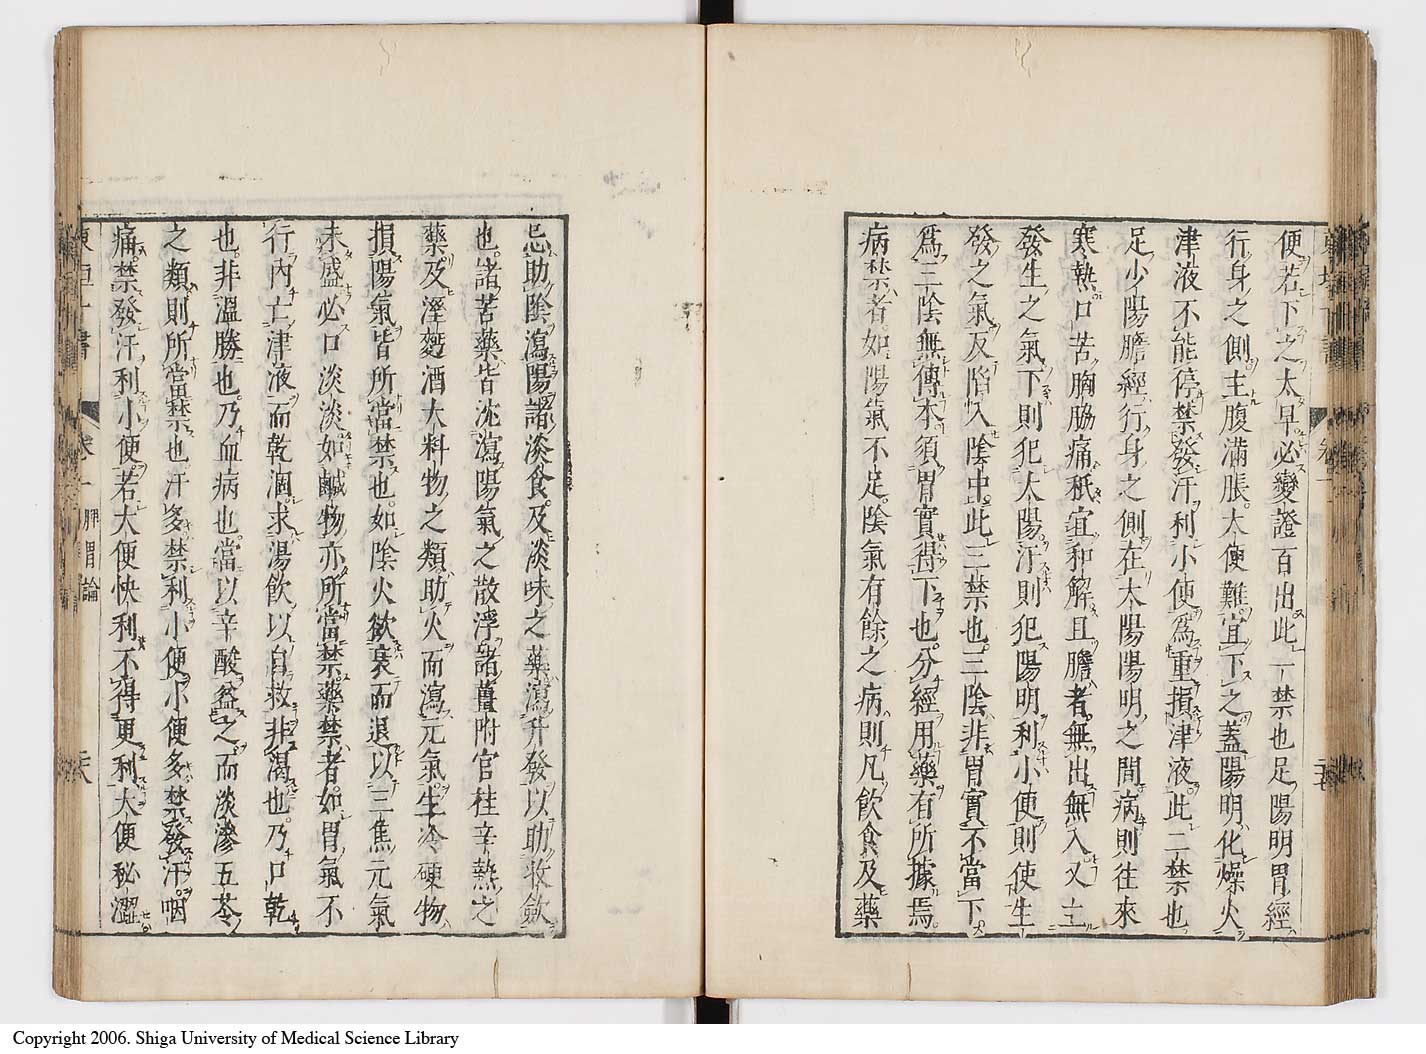 便若下之太早必變證百出此一禁也足陽明胃經
行身之側主腹滿脹大便難宜下之蓋陽明化燥火
津液不能停禁發汗利小便爲重損津液此二禁也
足少陽膽經行身之側在太陽陽明之間病則往來
寒熱口苦胸脇痛秖宜和解且膽者無出無入又主
發生之氣下則犯太陽汗則犯陽明利小便則使生
發之氣反陷入陰中此三禁也三陰非胃實不當下
爲三陰無傳本須胃實得下也分經用藥有所據焉
病禁者如陽氣不足陰氣有餘之病則凡飮食及藥
忌助陰瀉陽諸淡食及淡味之藥瀉升發以助收斂
也諸苦藥皆沈瀉陽氣之散浮諸薑附官桂辛熱之
藥及溼麪酒大料物之類助火而瀉元氣生冷硬物
損陽氣皆所當禁也如陰火欲衰而退以三焦元氣
未盛必口淡淡如鹹物亦所當禁藥禁者如胃氣不
行內亡津液而乾涸求湯飮以自救非渴也乃口乾
也非溫勝也乃血病也當以辛酸益之而淡滲五苓
之類則所當禁也汗多禁利小便小便多禁發汗咽
痛禁發汗利小便若大便快利不得更利大便秘澀
東垣十書 卷一 脾胃論 二十八
Copyright 2006. Shiga University of Medical Science Library